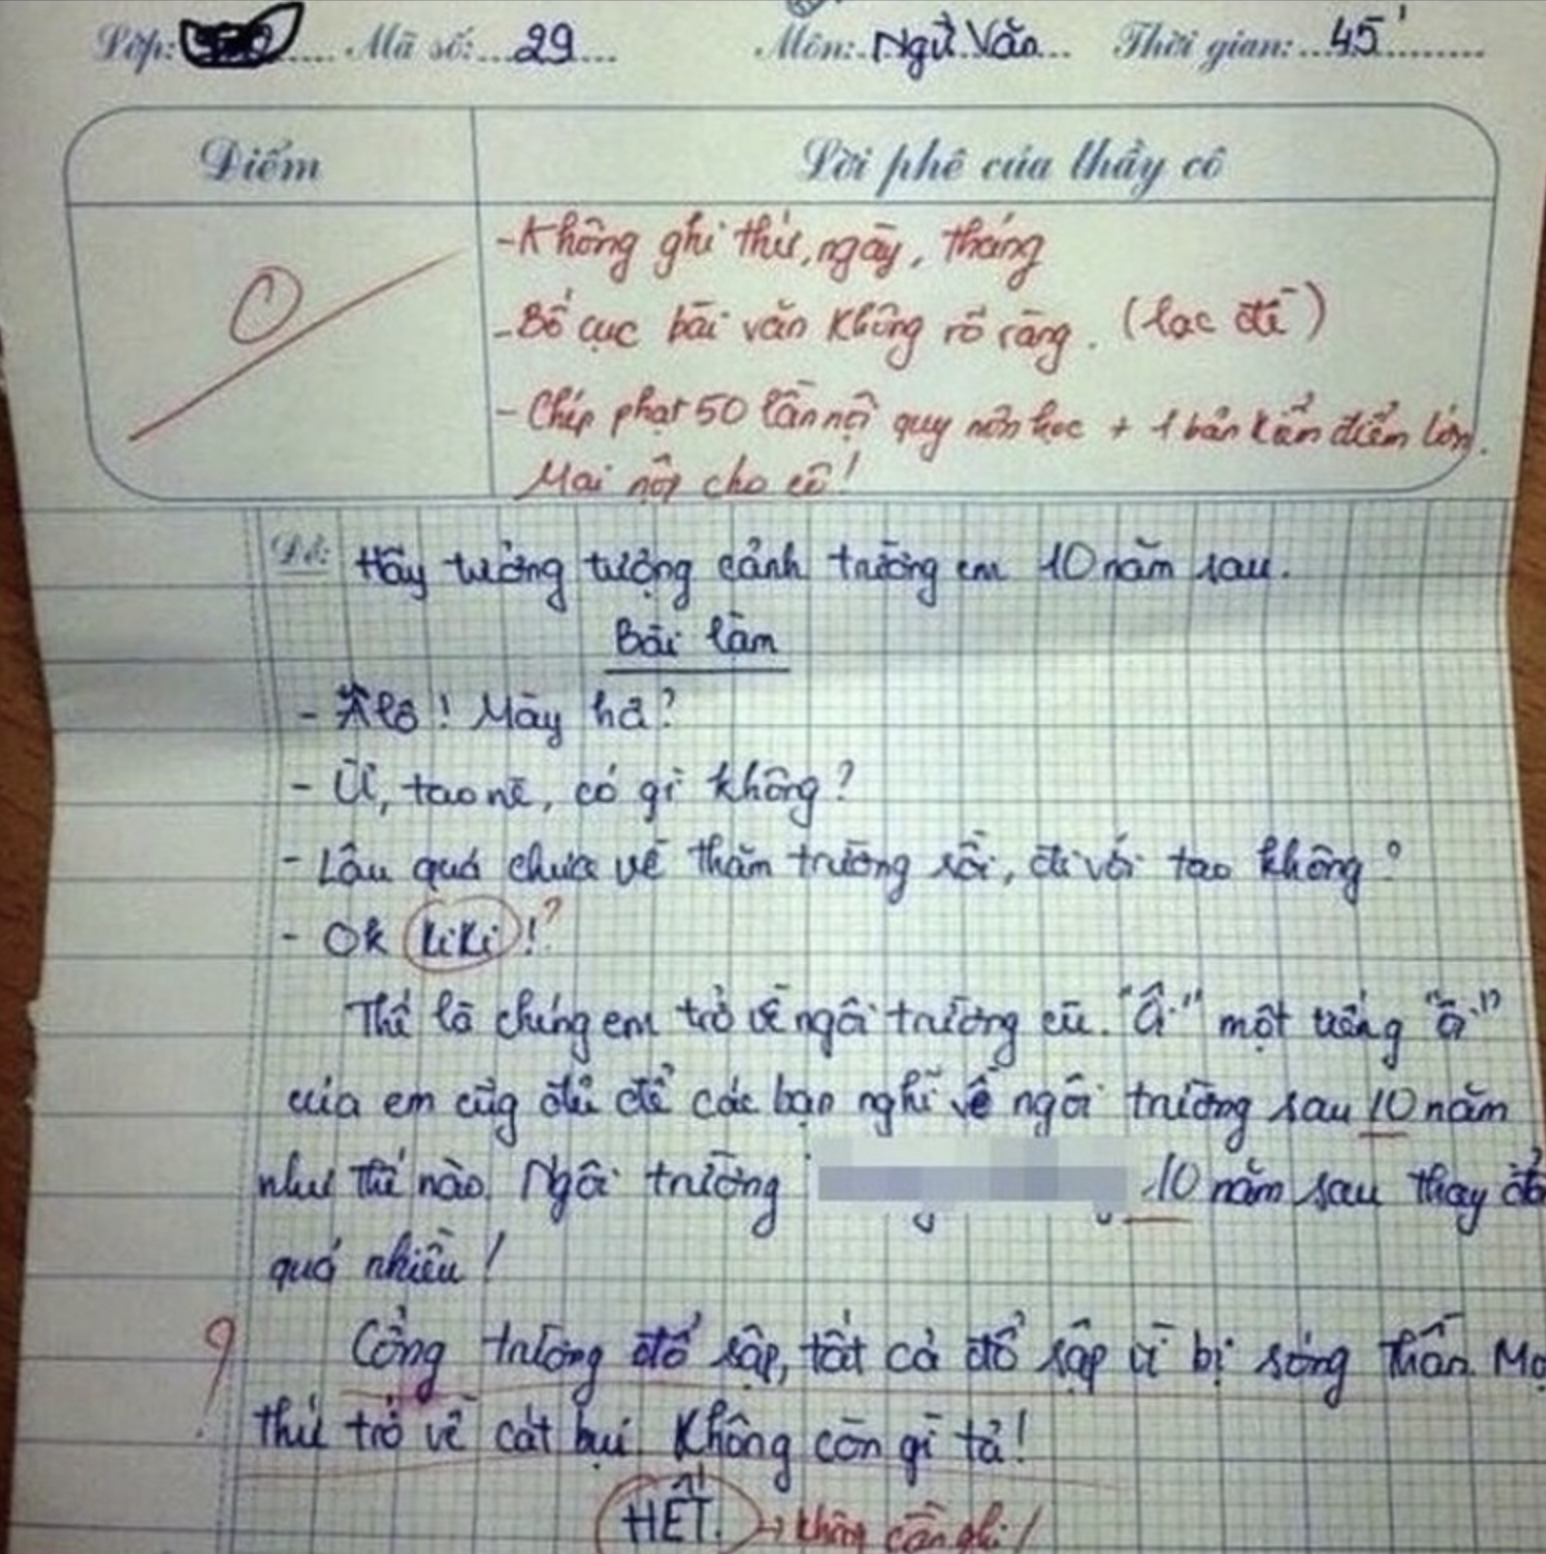 Lớp: Mã số: 29 Môn: Ngữ Văn Thời gian: 45'
Điểm Lời phê của thầy cô
0
- Không ghi thứ, ngày, tháng
- Bố cục bài văn không rõ ràng. (lạc đề)
- Chép phạt 50 lần nội quy môn học + 1 bản kiểm điểm lớn.
Mai nộp cho cô!
Đề: Hãy tưởng tượng cảnh trường em 10 năm sau.
Bài làm
- Alô! Mày hả?
- Ừ, tao nè, có gì không?
- Lâu quá chưa về thăm trường rồi, đi với tao không?
- Ok kiki!?
Thế là chúng em trở về ngôi trường cũ. "Ồ" một tiếng "ồ"
của em cũg đủ để các bạn nghĩ về ngôi trường sau 10 năm
như thế nào. Ngôi trường 10 năm sau thay đổi
quá nhiều!
? Cổng trường đổ sập, tất cả đổ sập vì bị sóng thần. Mọ
thứ trở về cát bụi. Không còn gì tả!
HẾT. → không cần ghi!